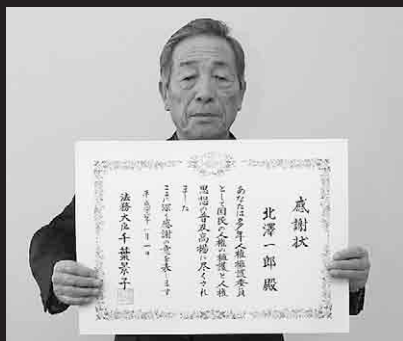 感謝状
北澤一郎殿
あなたは多年人権擁護委員
として国民の人権の擁護と人権
思想の普及高揚に尽くされ
ました
ここに深く感謝の意を表します
平成
年一月一日
法務大臣千葉景子